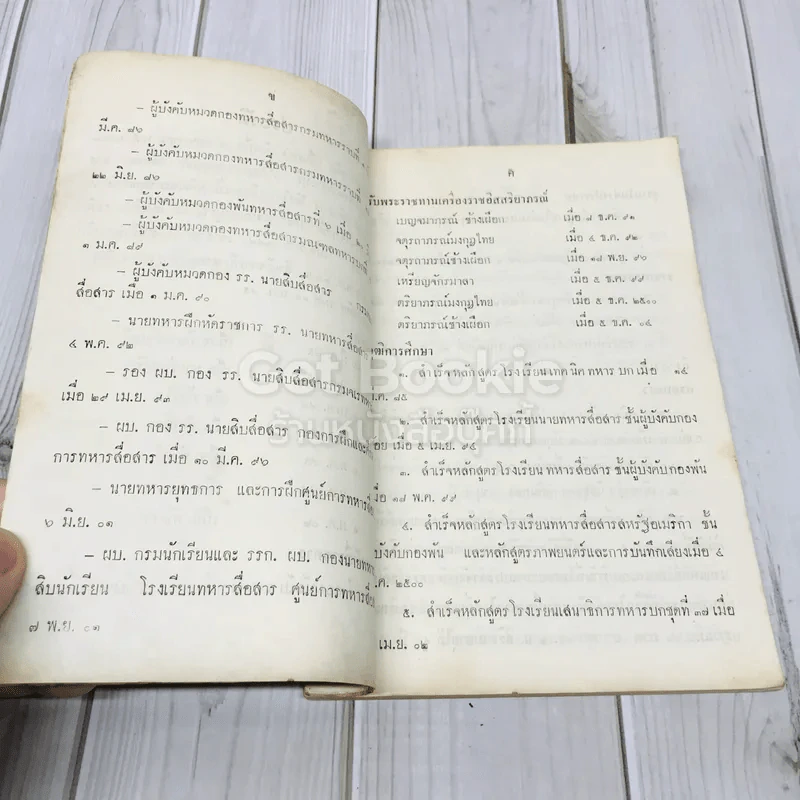 ข
– ผู้บังคับหมวดกองทหารสื่อสารกรมทหารราบที่
มี.ค. ๘๖
– ผู้บังคับหมวดกองทหารสื่อสารกรมทหารราบที่
๒๒ มิ.ย. ๘๖
– ผู้บังคับหมวดกองพันทหารสื่อสารที่ ๖ เมื่อ
– ผู้บังคับหมวดกองทหารสื่อสารมณฑลทหารบกที่
๑ ม.ค. ๘๙
– ผู้บังคับหมวดกอง รร. นายสิบสื่อสาร
สื่อสาร เมื่อ ๑ ม.ค. ๙๐
– นายทหารฝึกหัดราชการ รร. นายทหารสื่อสาร
๔ พ.ค. ๙๒
– รอง ผบ. กอง รร. นายสิบสื่อสารกรมจเรทหาร
เมื่อ ๒๙ เม.ย. ๙๓
– ผบ. กอง รร. นายสิบสื่อสาร กองการฝึกและ
การทหารสื่อสาร เมื่อ ๑๐ มี.ค. ๙๖
– นายทหารยุทธการ และการฝึกศูนย์การทหาร
๖ มิ.ย. ๐๑
– ผบ. กรมนักเรียนและ รรก. ผบ. กองนายทหาร
สิบนักเรียน โรงเรียนทหารสื่อสาร ศูนย์การทหาร
๗ พ.ย. ๐๑
ค
รับพระราชทานเครื่องราชอิสสริยาภรณ์
เบญจมาภรณ์ ช้างเผือก เมื่อ ๗ ธ.ค. ๙๑
จตุรถาภรณ์มงกุฎไทย เมื่อ ๕ ธ.ค. ๙๒
จตุรถาภรณ์ช้างเผือก เมื่อ ๑๗ พ.ย. ๙๖
เหรียญจักรมาลา เมื่อ ๕ ธ.ค. ๙๙
ตริยาภรณ์มงกุฎไทย เมื่อ ๕ ธ.ค. ๒๕๐๐
ตริยาภรณ์ช้างเผือก เมื่อ ๕ ธ.ค. ๐๔
วุฒิการศึกษา
๑. สำเร็จหลักสูตรโรงเรียนเทคนิคทหารบก เมื่อ ๑๔
.ค. ๘๕
๒. สำเร็จหลักสูตรโรงเรียนนายทหารสื่อสาร ชั้นผู้บังคับกอง
ร้อย เมื่อ ๕ เม.ย. ๙๔
๓. สำเร็จหลักสูตรโรงเรียนทหารสื่อสาร ชั้นผู้บังคับกองพัน
เมื่อ ๑๗ พ.ค. ๙๙
๔. สำเร็จหลักสูตรโรงเรียนทหารสื่อสารสหรัฐอเมริกา ชั้น
บังคับกองพัน และหลักสูตรภาพยนตร์และการบันทึกเสียงเมื่อ ๔
.ค. ๒๕๐๐
๕. สำเร็จหลักสูตรโรงเรียนเสนาธิการทหารบกชุดที่ ๓๗ เมื่อ
เม.ย. ๐๒
Get Bookie
ร้านหนังสือบุ๊คกี้